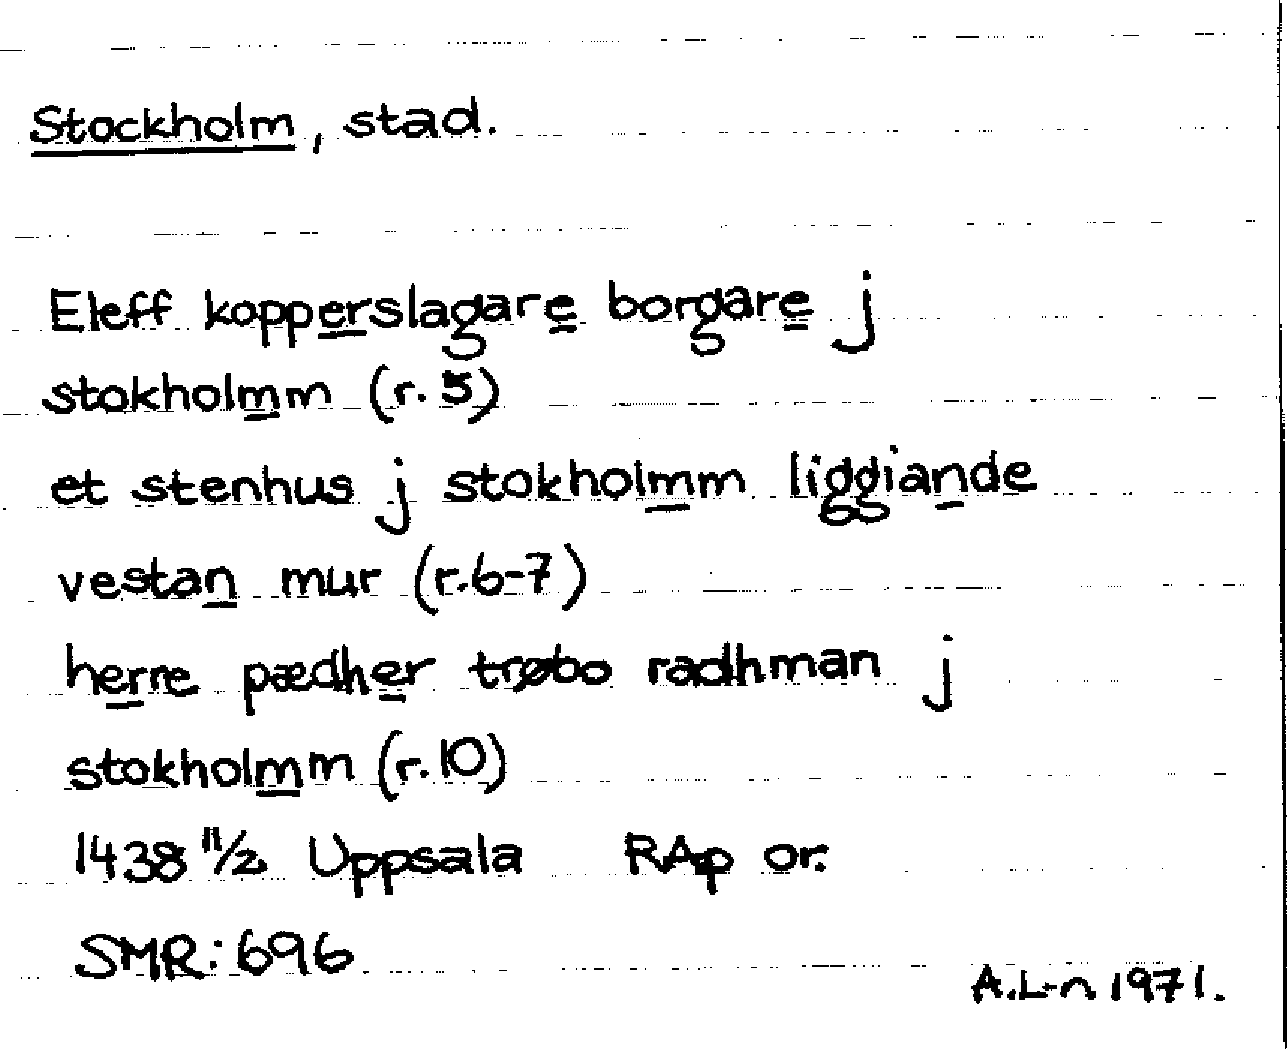 Stockholm, stad.
Eleff kopperslagare borgare j
stokholmm (r. 5)
et stenhus j stokholmm liggiande
vestan mur (r.6-7)
herre pædher trøbo radhman j
stokholmm (r.10)
1438 11/2 Uppsala RAp or.
SMR: 696
A.L-n 1971.